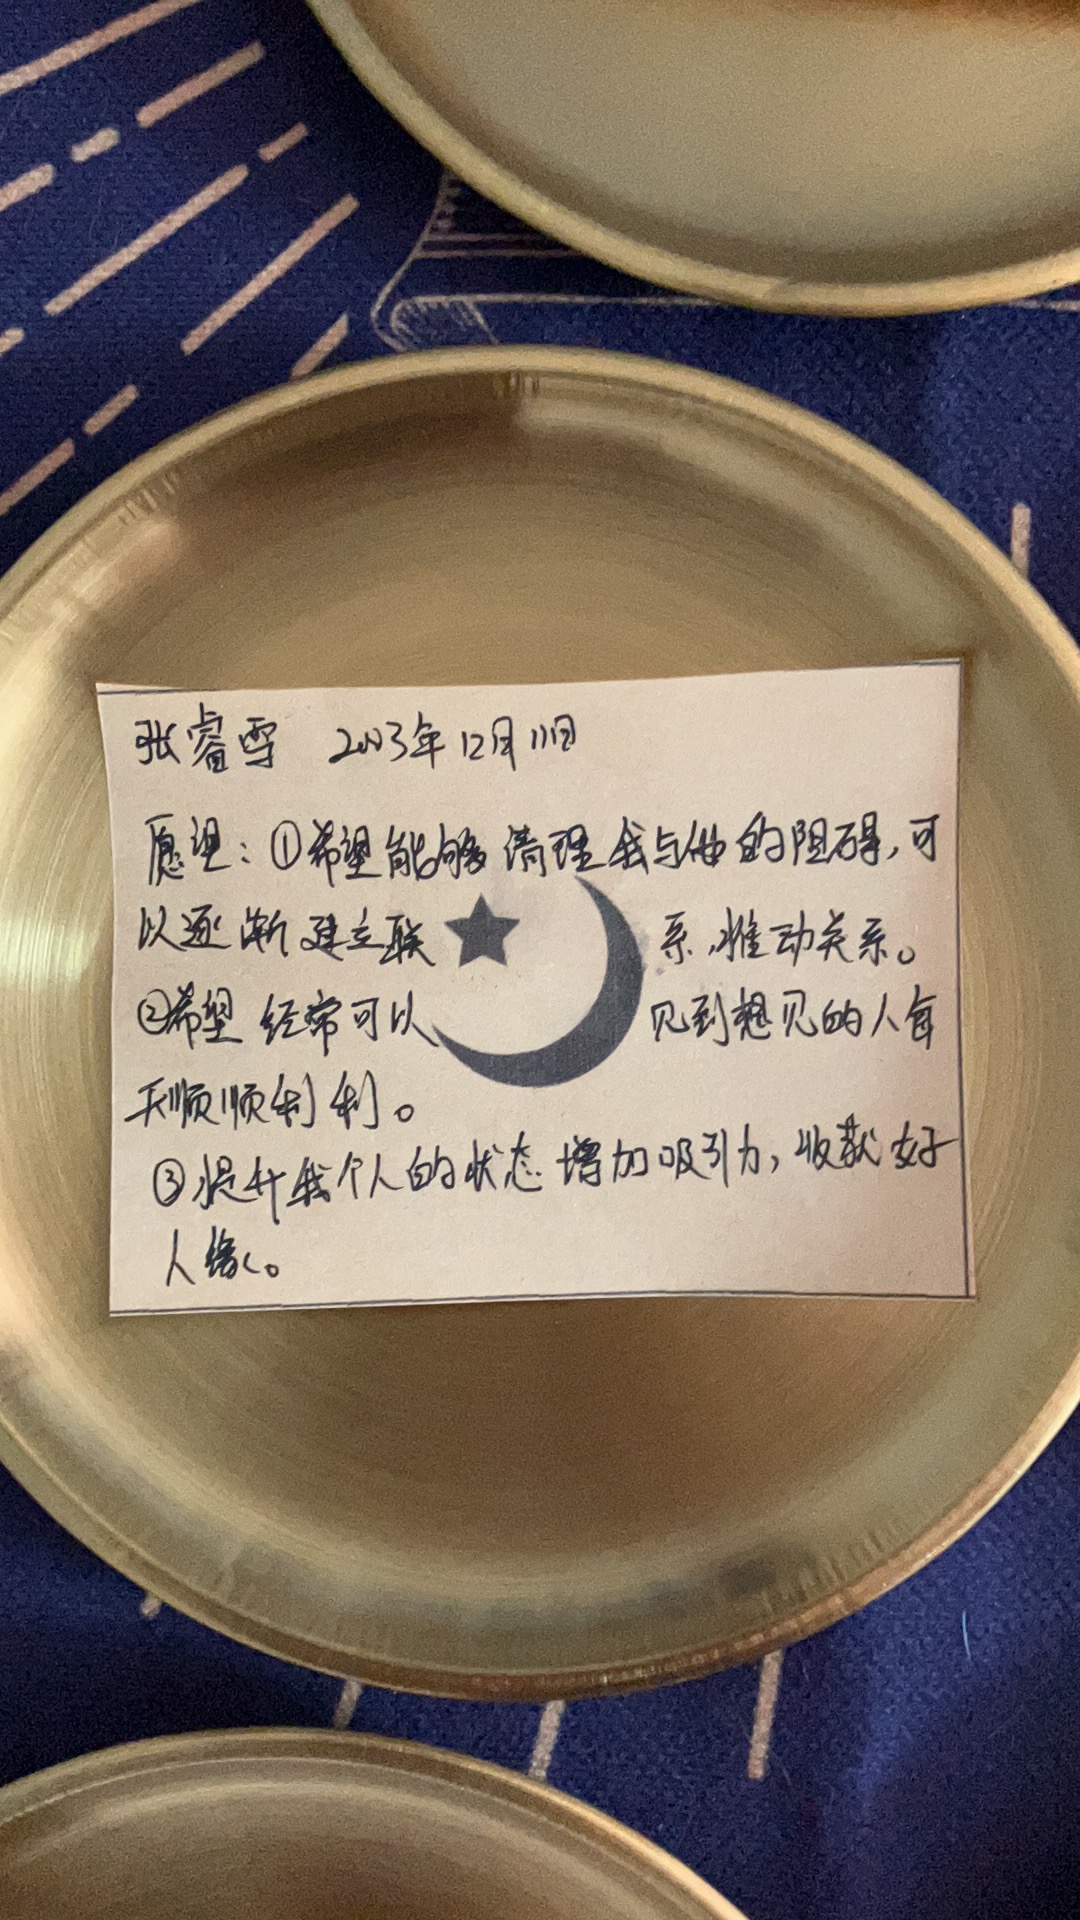 张睿雪 2003年12月11日
愿望：①希望能够清理我与他的阻碍，可
以逐渐建立联系，推动关系。
②希望经常可以见到想见的人每
天顺顺利利。
③提升我个人的状态增加吸引力，收获好
人缘。